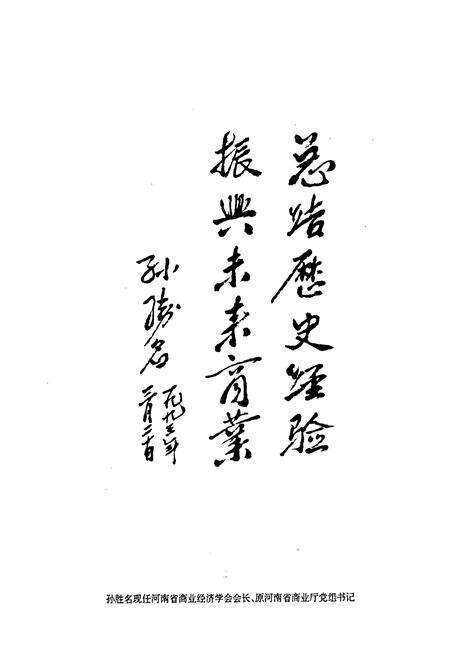 总结歷史经验
振興未来商業
孙胜名
一九九三年
三月二十日
孙胜名现任河南省商业经济学会会长、原河南省商业厅党组书记